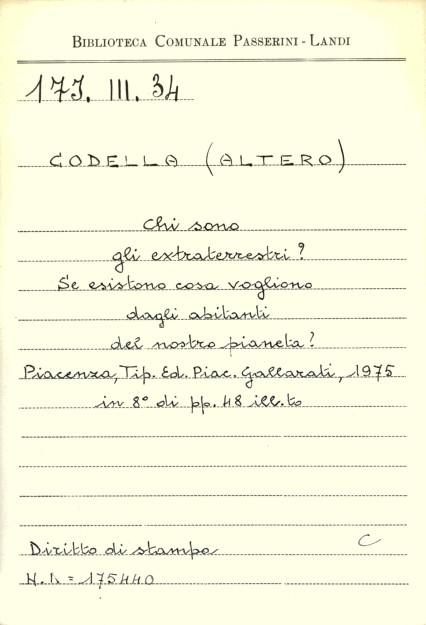 BIBLIOTECA COMUNALE PASSERINI - LANDI
173. III. 34
GODELLA (ALTERO)
Chi sono
gli extraterrestri?
Se esistono cosa vogliono
dagli abitanti
del nostro pianeta?
Piacenza, Tip. Ed. Piac. Gallarati, 1975
in 8° di pp. 48 ill.to
Diritto di stampa
C
N.I. = 175440